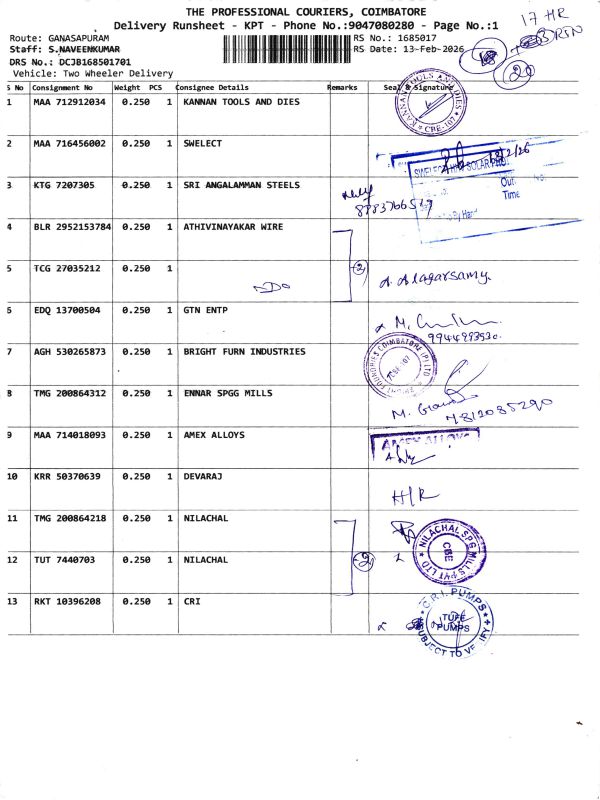 THE PROFESSIONAL COURIERS, COIMBATORE
Delivery Runsheet - KPT - Phone No.:9047080280 - Page No.:1
17 HR
Route: GANASAPURAM RS No.: 1685017
Staff: S.NAVEENKUMAR RS Date: 13-Feb-2026
20
DRS No.: DCJB168501701
Vehicle: Two Wheeler Delivery
S No Consignment No Weight PCS Consignee Details Remarks Seal & Signature
1 MAA 712912034 0.250 1 KANNAN TOOLS AND DIES
KANNAN TOOLS AND DIES
CBE-107
2 MAA 716456002 0.250 1 SWELECT
Out
Time
By Hand
3 KTG 7207305 0.250 1 SRI ANGALAMMAN STEELS
4 BLR 2952153784 0.250 1 ATHIVINAYAKAR WIRE
5 TCG 27035212 0.250 1
Do
2
A. Alagarsamy.
6 EDQ 13700504 0.250 1 GTN ENTP
7 AGH 530265873 0.250 1 BRIGHT FURN INDUSTRIES
8 TMG 200864312 0.250 1 ENNAR SPGG MILLS
7812085290
9 MAA 714018093 0.250 1 AMEX ALLOYS
AMEX ALLOYS
10 KRR 50370639 0.250 1 DEVARAJ
H/R
11 TMG 200864218 0.250 1 NILACHAL
2
NILACHAL SPG MILLS PVT LTD
CBE
12 TUT 7440703 0.250 1 NILACHAL
13 RKT 10396208 0.250 1 CRI
C.R.I. PUMPS
PUMPS
SUBJECT TO VERIFY